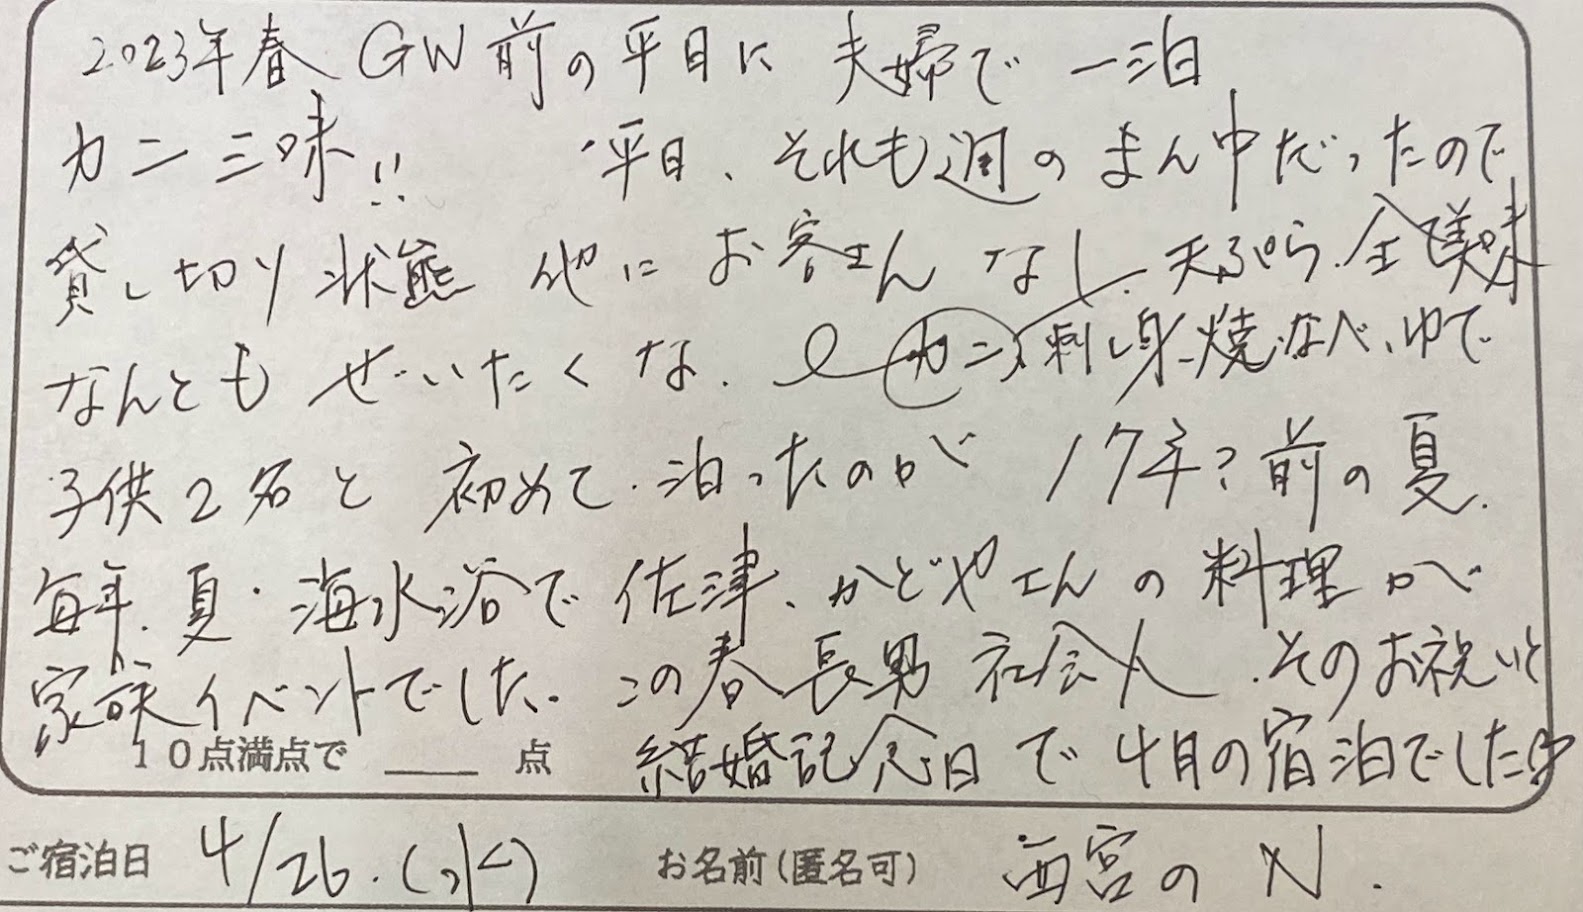 2023年春 GW前の平日に 夫婦で 一泊
カニ三昧!! 平日、それも週のまん中だったので
貸し切り状態 他にお客さん なし. 天ぷら. 全て美味
なんとも ぜいたくな. カニ、刺し身、焼、なべ、ゆで
子供2名と 初めて. 泊ったのが 17年?前の夏.
毎年. 夏・海水浴で 佐津、かどやさんの料理が
家族イベントでした. この春 長男 社会人. そのお祝いと
10点満点で ____ 点 結婚記念日で 4月の宿泊でした
ご宿泊日 4/26.(水) お名前(匿名可) 西宮の N.